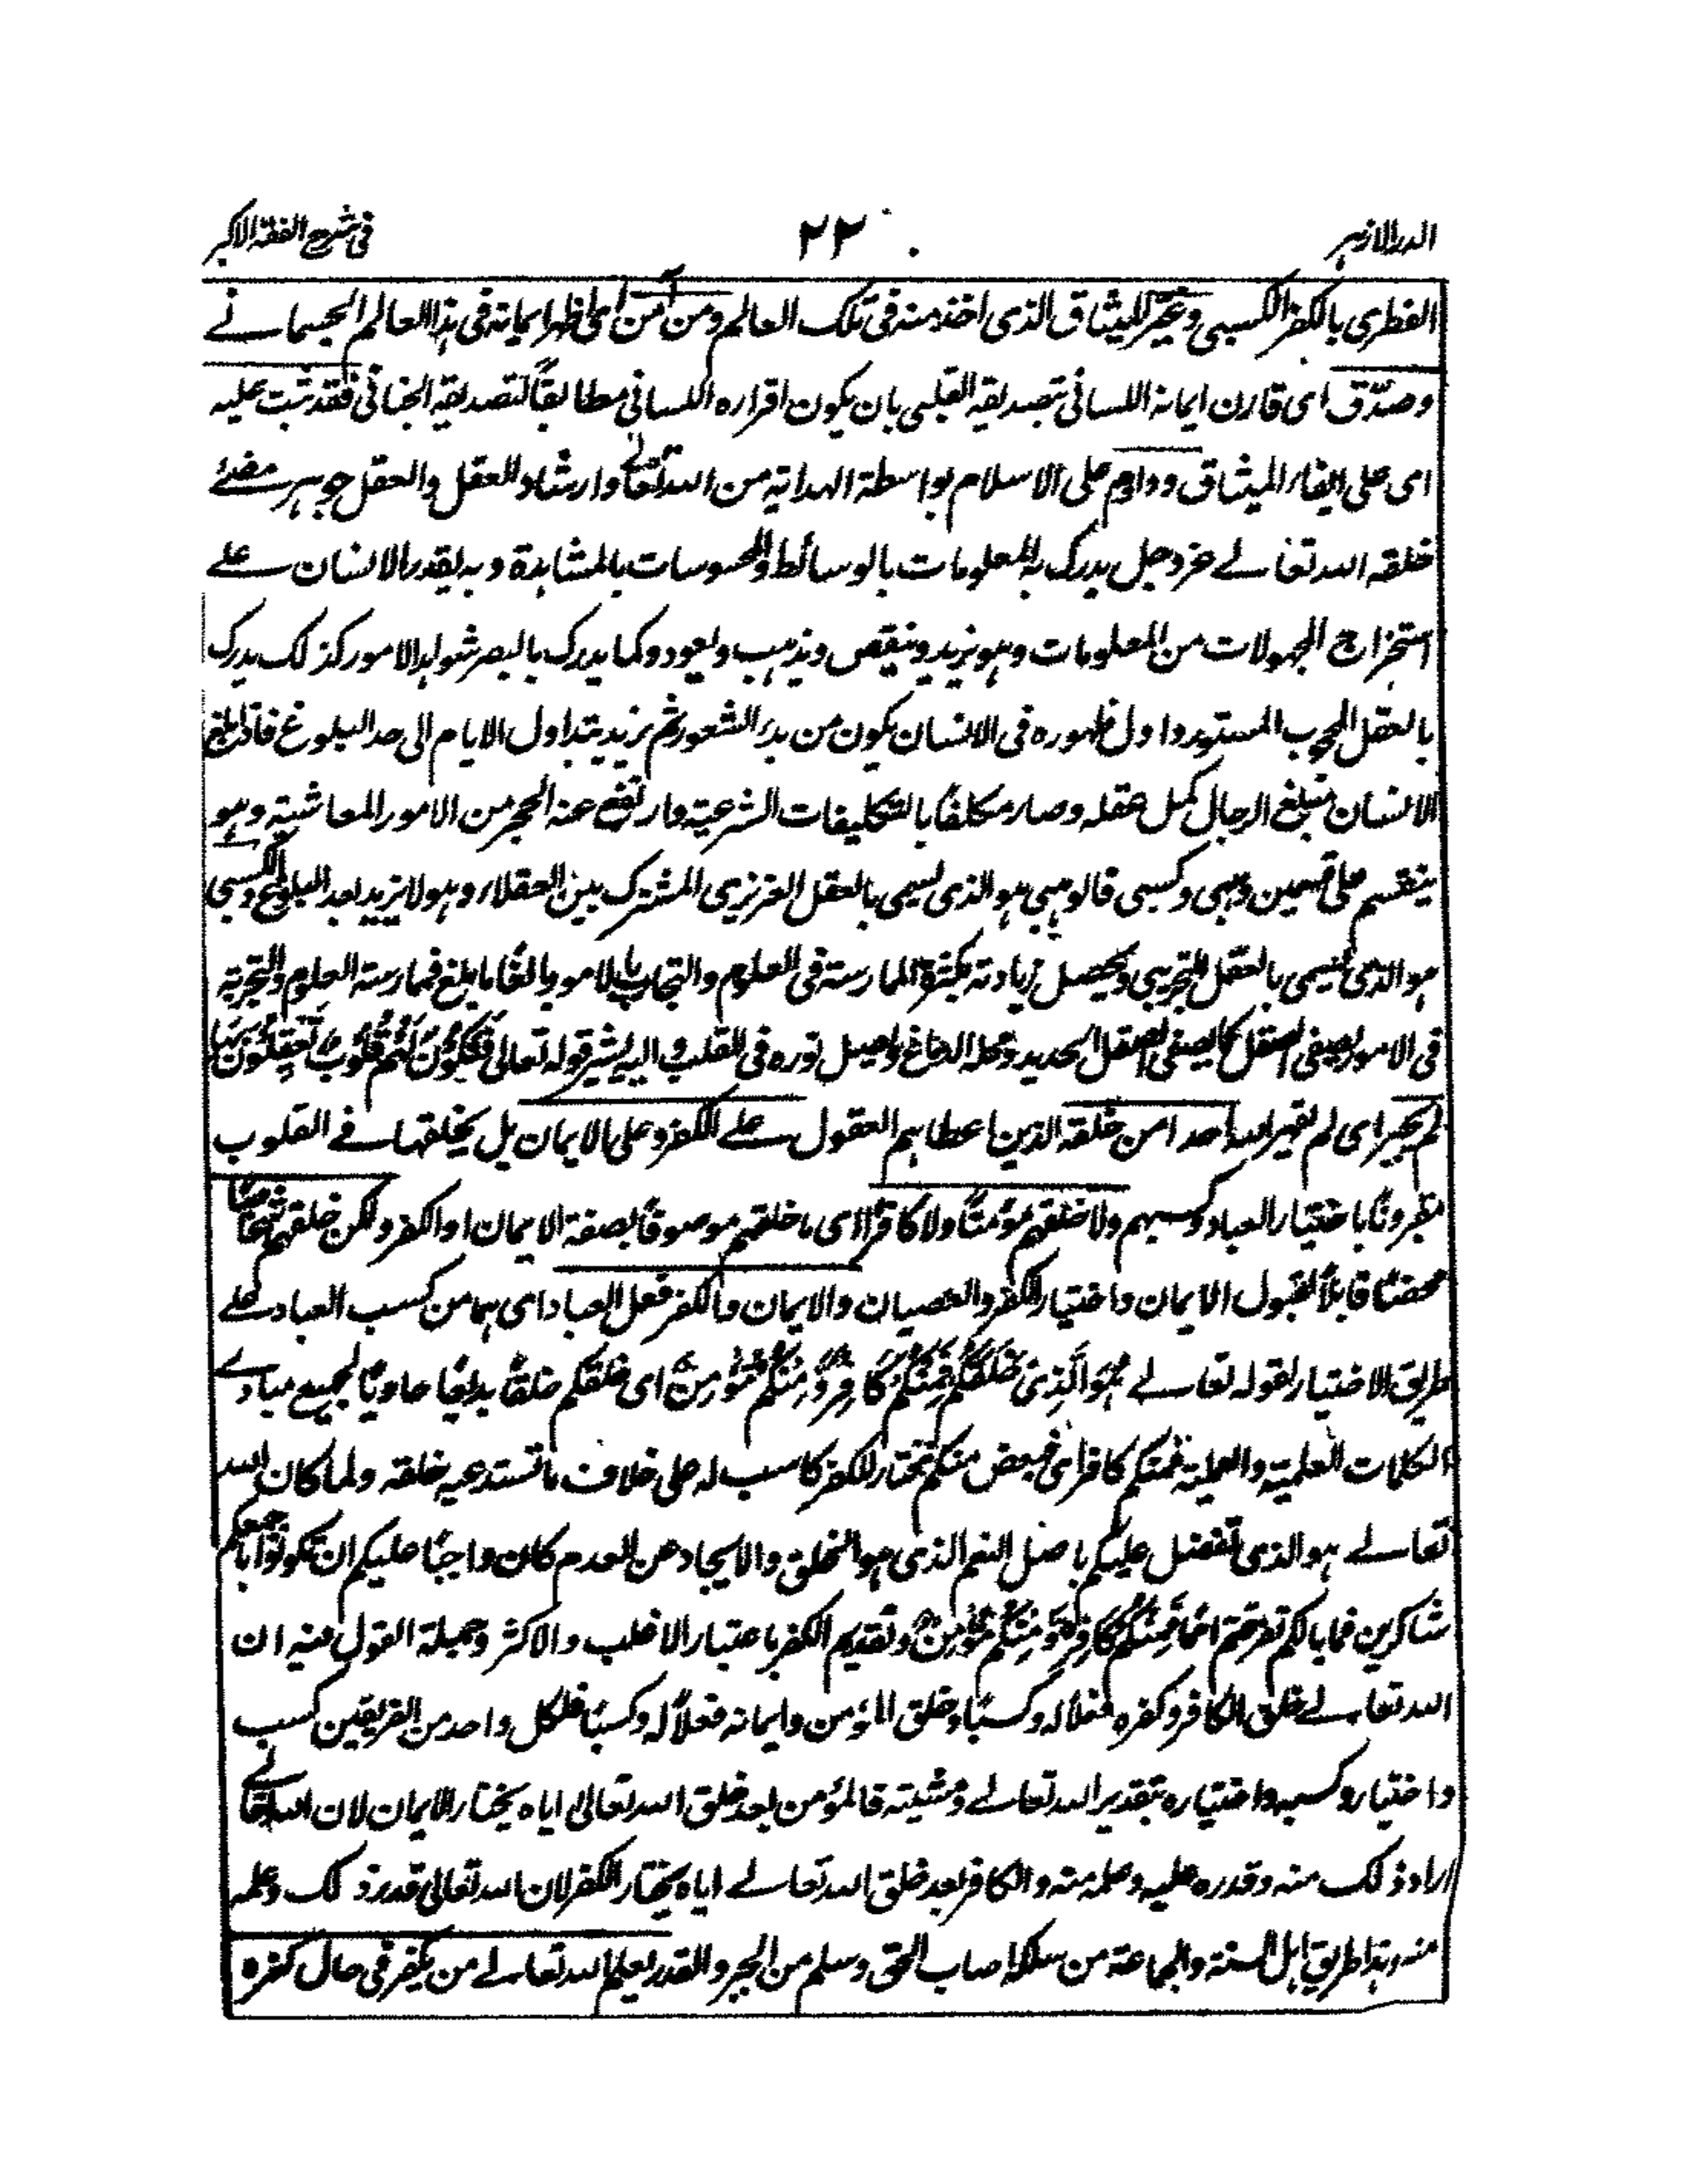 الدر الازهر ٢٢ فی شرح الفقه الاکبر
الفطری بالکفر الکسبی وغیّر المیثاق الذی اخذ منه فی تلک العالم ومن آمن ای اظهر ایمانه فی هذا العالم الجسمانے
وصدّق ای قارن ایمانه اللسانی بتصدیقه القلبی بان یکون اقراره اللسانی مطابقاً لتصدیقه الجنانی فقد ثبت علیه
ای علی ایفاء المیثاق وداوم علی الاسلام بواسطة الهدایة من الله تعالی وارشاد العقل والعقل جوهر مضئے
خلقه الله تعالے عزوجل یدرک به المعلومات بالوسائط والمحسوسات بالمشاهدة وبه یقدر الانسان علے
استخراج المجهولات من المعلومات وهو یزید وینقص ویذهب ویعود وکما یدرک بالبصر شواهد الامور کذلک یدرک
بالعقل المحجوب المستور واول ظهوره فی الانسان یکون من بدء الشعور ثم یزید بتداول الایام الی حد البلوغ فاذا بلغ
الانسان مبلغ الرجال کمل عقله وصار مکلفاً بالتکلیفات الشرعیة وارتفع عنه الحجر من الامور المعاشیة وهو
ینقسم علی قسمین وهبی وکسبی فالوهبی هو الذی یسمی بالعقل الغریزی المشترک بین العقلاء وهو لا یزید بعد البلوغ والکسبی
هو الذی یسمی بالعقل التجربی ویحصل زیادته بکثرة الممارسة فی العلوم والتجارب بالامور بالغاً ما بلغ فممارسة العلوم والتجربة
فی الامور یصفی العقل کما یصفی الصقل الحدید ومحله الدماغ ویصل نوره فی القلب والیه یشیر قوله تعالی فَتَکُوْنَ لَهُمْ قُلُوْبٌ یَّعْقِلُوْنَ بِهَا
لم یجبر ای لم یقهر الله احدا من خلقه الذین اعطاهم العقول علے الکفر وعلی الایمان بل یخلقهما فے القلوب
مقروناً باختیار العباد وکسبهم ولا خلقهم مؤمناً ولا کافراً ای ما خلقهم موصوفاً بصفة الایمان او الکفر ولکن خلقهم شخاصاً
محضاً قابلاً لقبول الایمان واختیار الکفر والعصیان والایمان والکفر فعل العباد ای هما من کسب العباد علے
طریق الاختیار لقوله تعالے هُوَ الَّذِیْ خَلَقَکُمْ فَمِنْکُمْ کَافِرٌ وَّمِنْکُمْ مُّؤْمِنٌ ای خلقکم خلقاً بدیعاً حاویاً لجمیع مبادے
الکمالات العلمیة والعملیة فمنکم کافر ای فبعض منکم مختار للکفر کاسب له علی خلاف ما تستدعیه خلقه ولما کان الله
تعالے هو الذی تفضل علیکم باصل النعم الذی هو الخلق والایجاد عن العدم کان واجباً علیکم ان تکونوا باجمعکم
شاکرین فما بالکم تفرقتم امماً فَمِنْکُمْ کَافِرٌ وَّمِنْکُمْ مُّؤْمِنٌ وتقدیم الکفر باعتبار الاغلب والاکثر وجملة القول فیه ان
الله تعالے خلق الکافر وکفره فعلاً له وکسباً وخلق المؤمن وایمانه فعلاً له وکسباً فلکل واحد من الفریقین کسب
واختیار وکسبه واختیاره بتقدیر الله تعالے ومشیته فالمؤمن بعد خلق الله تعالی ایاه یختار الایمان لان الله تعالے
اراد ذلک منه وقدره علیه وعلمه منه والکافر بعد خلق الله تعالے ایاه یختار الکفر لان الله تعالی قدر ذلک وعلمه
منه هذا طریق اهل السنة والجماعة من سلکه اصاب الحق وسلم من الجبر والقدر یعلم الله تعالے من یکفر فی حال کفره